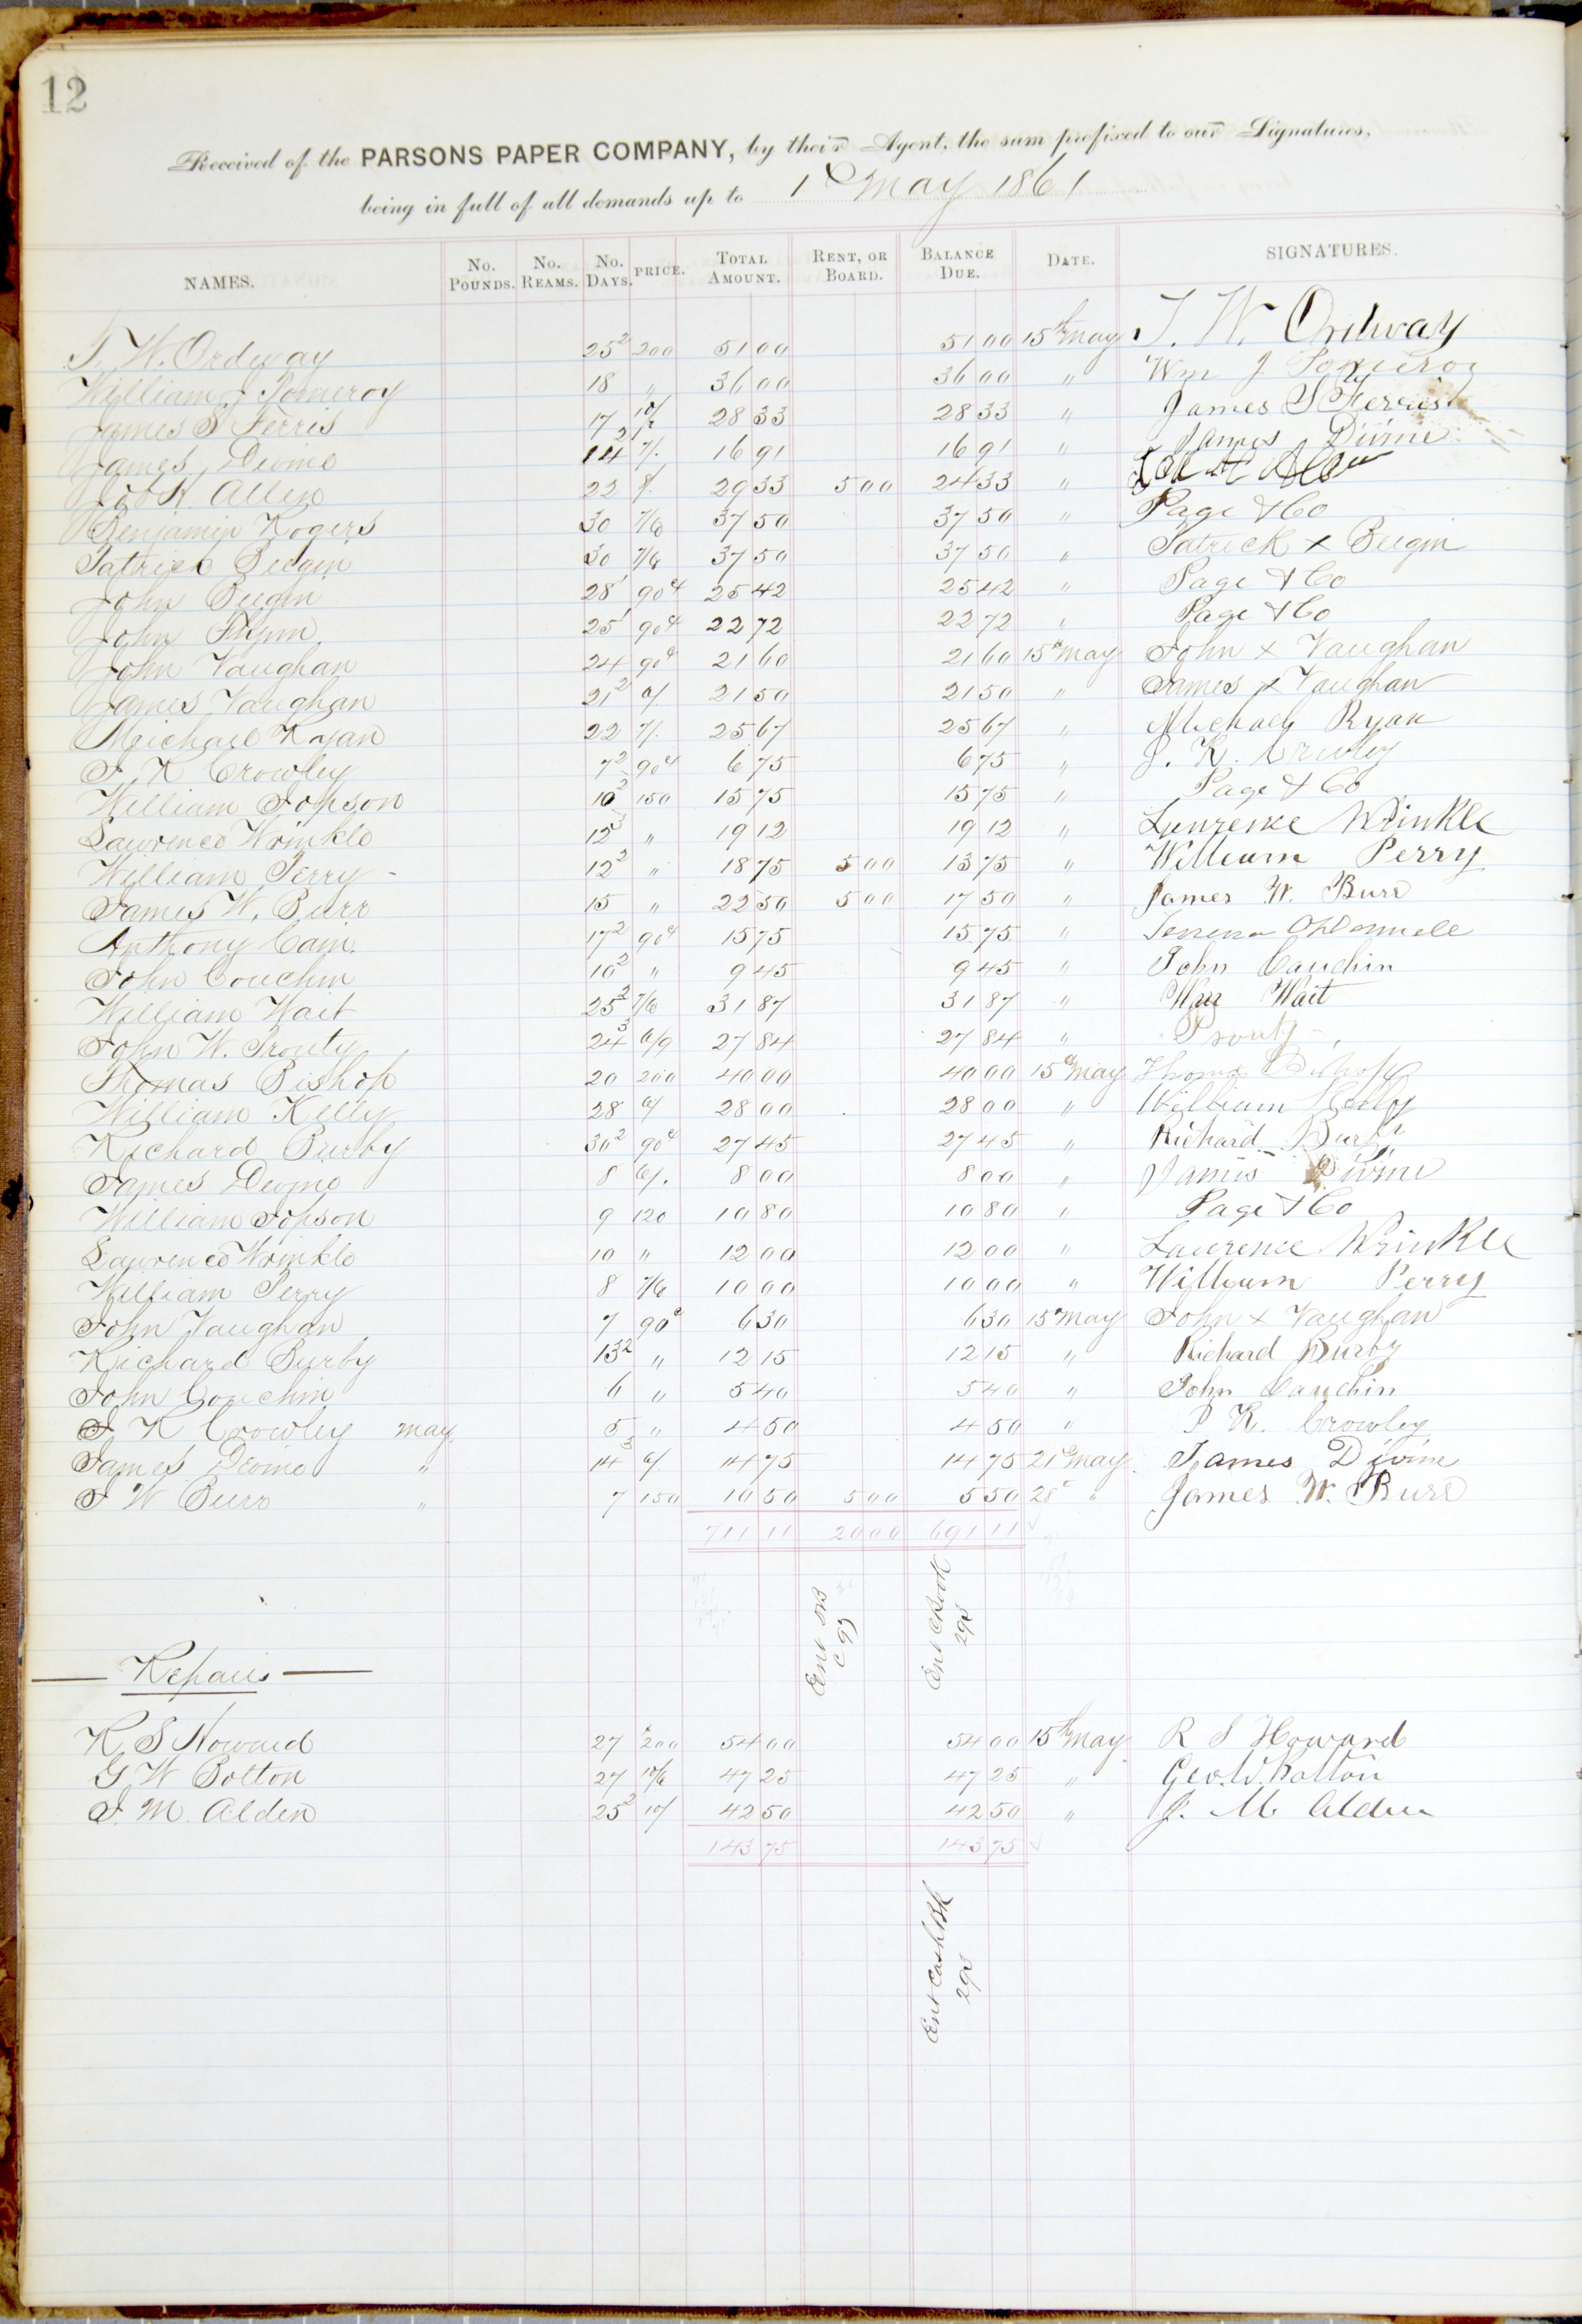 12
Received of the PARSONS PAPER COMPANY, by their Agent, the sum prefixed to our Signatures,
being in full of all demands up to 1st May 1861
NAMES. No. Pounds. No. Reams. No. Days. PRICE. Total Amount. Rent, or Board. Balance Due. Date. SIGNATURES.
T. W. Ordway 25 2 200 51 00 51 00 15th May T. W. Ordway
William J. Pomeroy 18 " 36 00 36 00 " Wm J Pomeroy
James S Ferris 17 10/ 28 33 28 33 " James S Ferris
James Devine 14 2 7/. 16 91 16 91 " James Divine
Job H. Allen 22 8/. 29 33 5 00 24 33 "
Benjamin Rogers 30 7/6 37 50 37 50 " Page & Co
Patrick Beegin 30 7/6 37 50 37 50 " Patrick x Beegin
John Beegin 28 1 90c 25 42 25 42 " Page & Co
John Flynn 25 1 90c 22 72 22 72 " Page & Co
John Vaughan 24 90c 21 60 21 60 15th May John x Vaughan
James Vaughan 21 2 6/ 21 50 21 50 " James x Vaughan
Michael Ryan 22 7/. 25 67 25 67 " Michael Ryan
J. K Crowley 7 2 90c 6 75 6 75 " J. K. Crowley
William Jopson 10 2 150 15 75 15 75 " Page & Co
Lawrence Wrinkle 12 3 " 19 12 19 12 " Lawrence Wrinkle
William Perry - 12 2 " 18 75 5 00 13 75 " William Perry
James W. Burr 15 " 22 50 5 00 17 50 " James W. Burr
Anthony Cain. 17 2 90c 15 75 15 75 " O'Donnell
John Couchin 10 2 " 9 45 9 45 " John Cauchin
William Wait 25 2 7/6 31 87 31 87 " Wm Wait
John W. Prouty 24 3 6/9 27 84 27 84 " Prouty
Thomas Bishop 20 200 40 00 40 00 15th May Thomas Bishop
William Kelly 28 6/ 28 00 28 00 " William Kelly
Richard Burby 30 2 90c 27 45 27 45 " Richard Burby
James Devine 8 6/. 8 00 8 00 " James Divine
William Jopson 9 120 10 80 10 80 " Page & Co
Lawrence Wrinkle 10 " 12 00 12 00 " Lawrence Wrinkle
William Perry 8 7/6 10 00 10 00 " William Perry
John Vaughan 7 90c 6 30 6 30 15th May John x Vaughan
Richard Burby 13 2 " 12 15 12 15 " Richard Burby
John Couchin 6 " 5 40 5 40 " John Cauchin
J K Crowley May 5 " 4 50 4 50 " J K. Crowley
James Devine " 14 3 6/ 14 75 14 75 21st May James Divine
J W Burr " 7 150 10 50 5 00 5 50 28th " James W. Burr
711 11 20 00 691 11
Ent C Book 293
Repairs
R S Howard 27 200 54 00 54 00 15th May R S Howard
G W Bolton 27 10/6 47 25 47 25 " Geo. W. Bolton
J. M Alden 25 2 10/ 42 50 42 50 " J. M. Alden
143 75 143 75
Ent Cash Bk 293